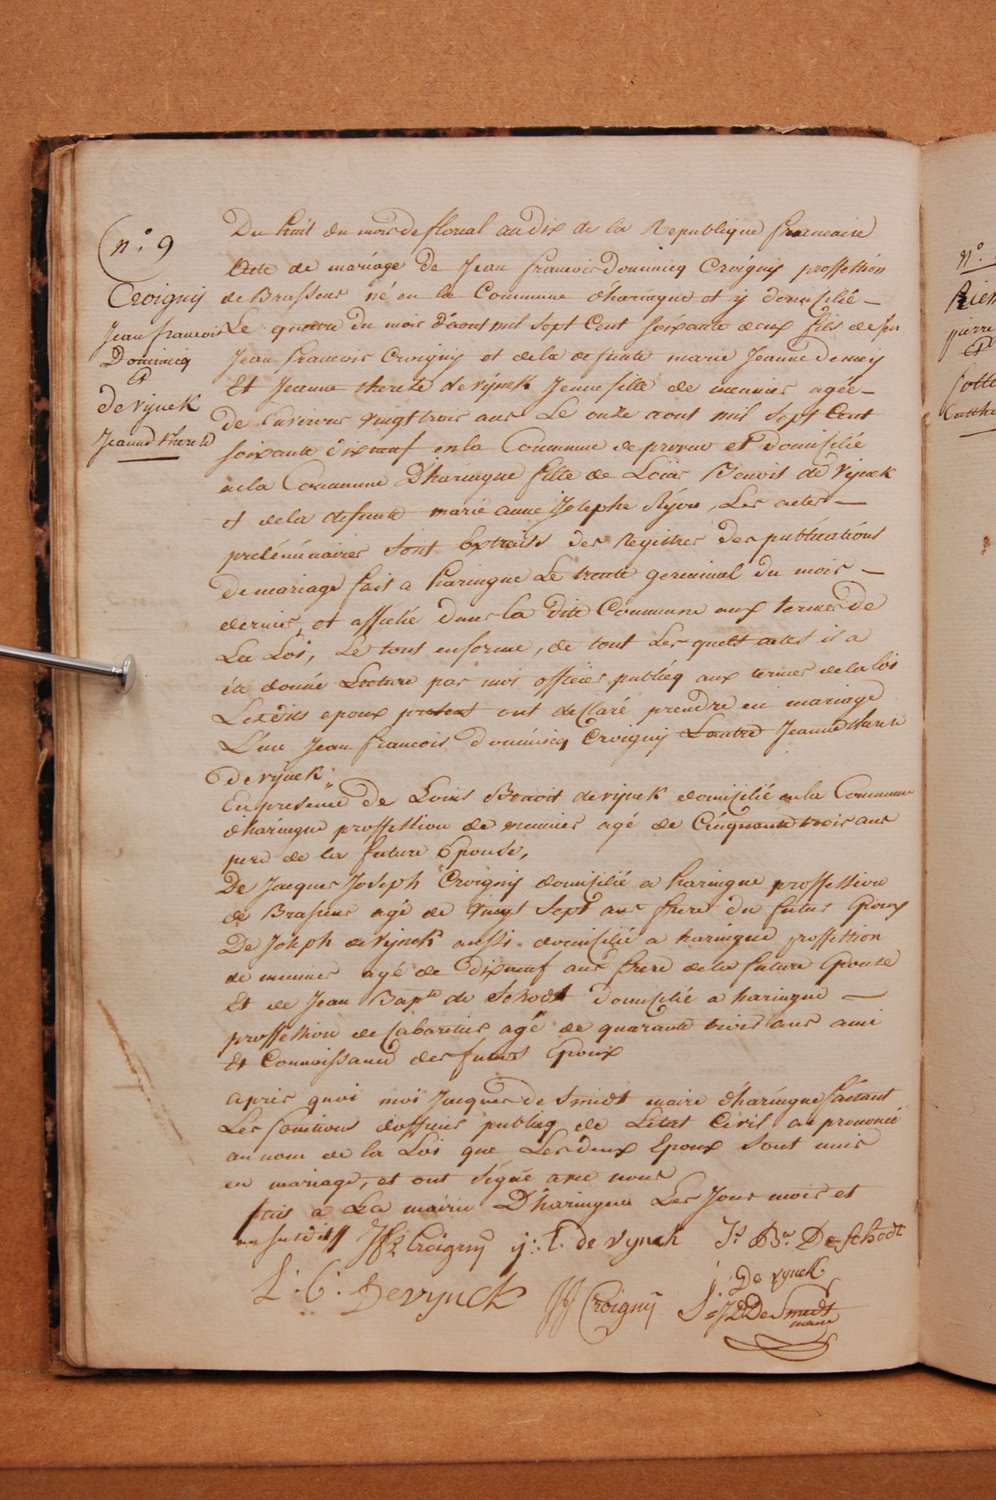 n.° 9
Croigny
Jean francois
Dominicq
&
devynck
Jeanne therese
Du huit du mois de floreal an dix de la Republique francaise
Acte de mariage de Jean francois Dominicq Croigny proffession
de Brasseur né en la Commune d'haringue et y domicilié —
Le quatre du mois d'aout mil sept Cent soixante deux fils de feu
Jean francois Croigny et de la defunte marie Jeanne
Et Jeanne therese de vynck Jeune fille de meunier agée —
De Environ vingt trois ans Le onze aout mil sept Cent
soixante dixneuf en la Commune de proven et Domicilié
en la Commune D'haringue fille de Louis Benoit de vynck
et de la defunte marie anne Josephe Ryon, Les actes —
preléminaires sont Extraits des Registres des publications
De mariage fait a haringue Le trente germinal du mois —
dernier, et affichée dans la dite Commune aux termes de
La Loi, Le tout en forme, de tout Les quels actes il a
été donné Lecture par moi officier publicq aux termes de la loi
Lesdits epoux present ont declaré prendre en mariage
L'un Jean francois dominicq Croigny L'autre Jeanne therese
devynck;
En presence de Louis Benoit devynck domicilié en la Commune
d'haringue proffession de meunier agé de Cinquante trois ans
pere de la future Epouse,
De Jacques Joseph Croigny domicilié a haringue proffession
de Brasseur agé de vingt sept ans frere du futur Epoux
De Joseph de vynck aussi domicilié a haringue proffession
de meunier agé de dixneuf ans frere de la future Epouse
Et de Jean Bap^te de Schodt domicilié a haringue —
proffession de Cabaretier agé de quarante trois ans ami
Et Connoissance des futurs Epoux
apris quoi moi Jacques de Smidt maire d'haringue faisant
Les fonctions d'officier publicq de L'etat Civil ai prononcé
au nom de la Loi que Les deux Epoux sont unis
en mariage, et ont signé avec nous
fait a La mairie D'haringue Les Jour mois et
an susdit Croigny j: t: de vynck J. B.te De Schodt
L: B: Devynck JJ Croigny j: De vynck
De Smidt
maire
n°.